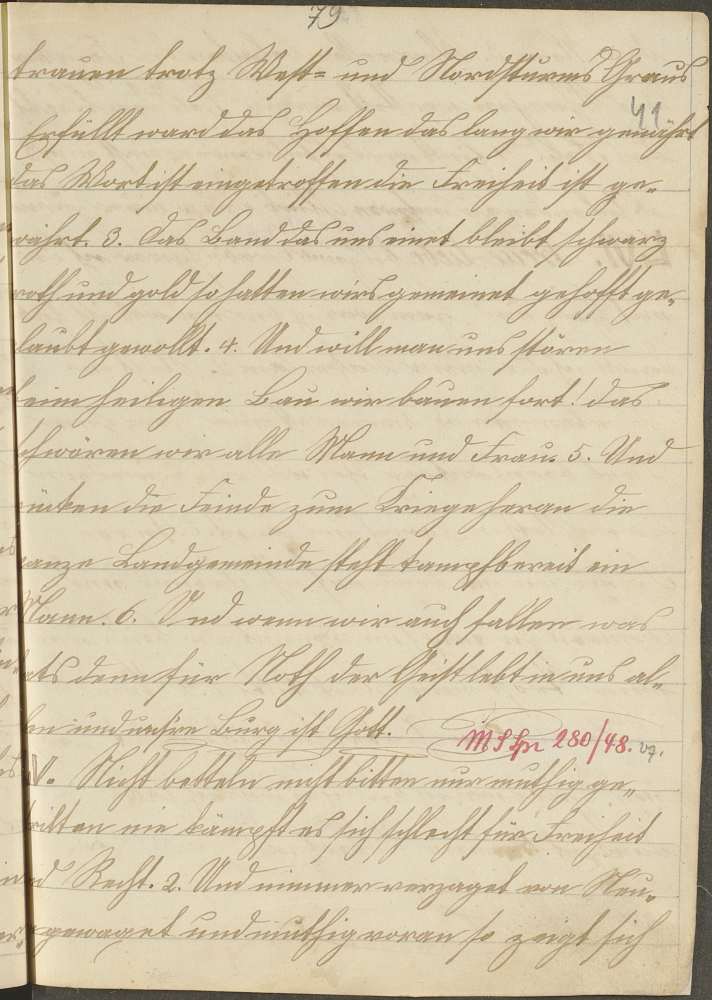 79
trauen trotz West= und Nordsturms Graus
41
Erfüllt ward das Hoffen das lang wir genährt
das Wort ist eingetroffen die Freiheit ist ge„
währt. 3. Das Band das uns einet bleibt schwarz
roth und gold so hatten wirs gemeinet gehofft ge„
laubt gewollt. 4. Und will man uns stören
beim heiligen Bau wir bauen fort! das
schwören wir alle Mann und Frau. 5. Und
rücken die Feinde zum Kriege heran die
ganze Landgemeinde steht kampfbereit ein
Mann. 6. Und wenn wir auch fallen was
hats denn für Noth der Geist lebt in uns al„
len und unsre Burg ist Gott.
280/48. 47.
IV. Nicht betteln nicht bitten nur muthig ge„
stritten nie kämpft es sich schlecht für Freiheit
und Recht. 2. Und nimmer verzaget von Neu„
gewaget und muthig voran so zeigt sich